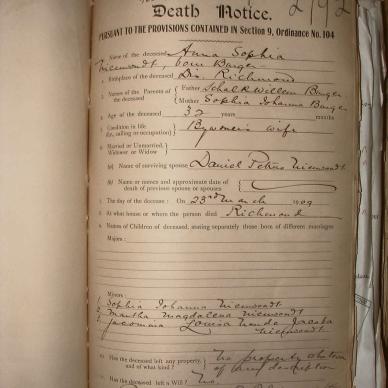 2792
Death Notice.
PURSUANT TO THE PROVISIONS CONTAINED IN Section 9, Ordinance No. 104
Name of the deceased Anna Sophia
born Burger
Birthplace of the deceased Dis. Richmond
Names of the Parents of the deceased { Father Schalk Willem Burger
Mother Sophia Johanna Burger
Age of the deceased 32 years months
Condition in life (as, calling or occupation) } Bywoner's wife
Married or Unmarried, Widower or Widow }
(a) Name of surviving spouse Daniel Petrus
(b) Name or names and approximate date of death of previous spouse or spouses }
The day of the decease: On 23rd March 1909
At what house or where the person died Richmond
Names of Children of deceased, stating separately those born of different marriages
Majors:
Minors:
1. Sophia Johanna
2. Martha Magdalena
3. Louisa Jacoba
Has the deceased left any property and of what kind? } No property
of any description
Has the deceased left a Will? No